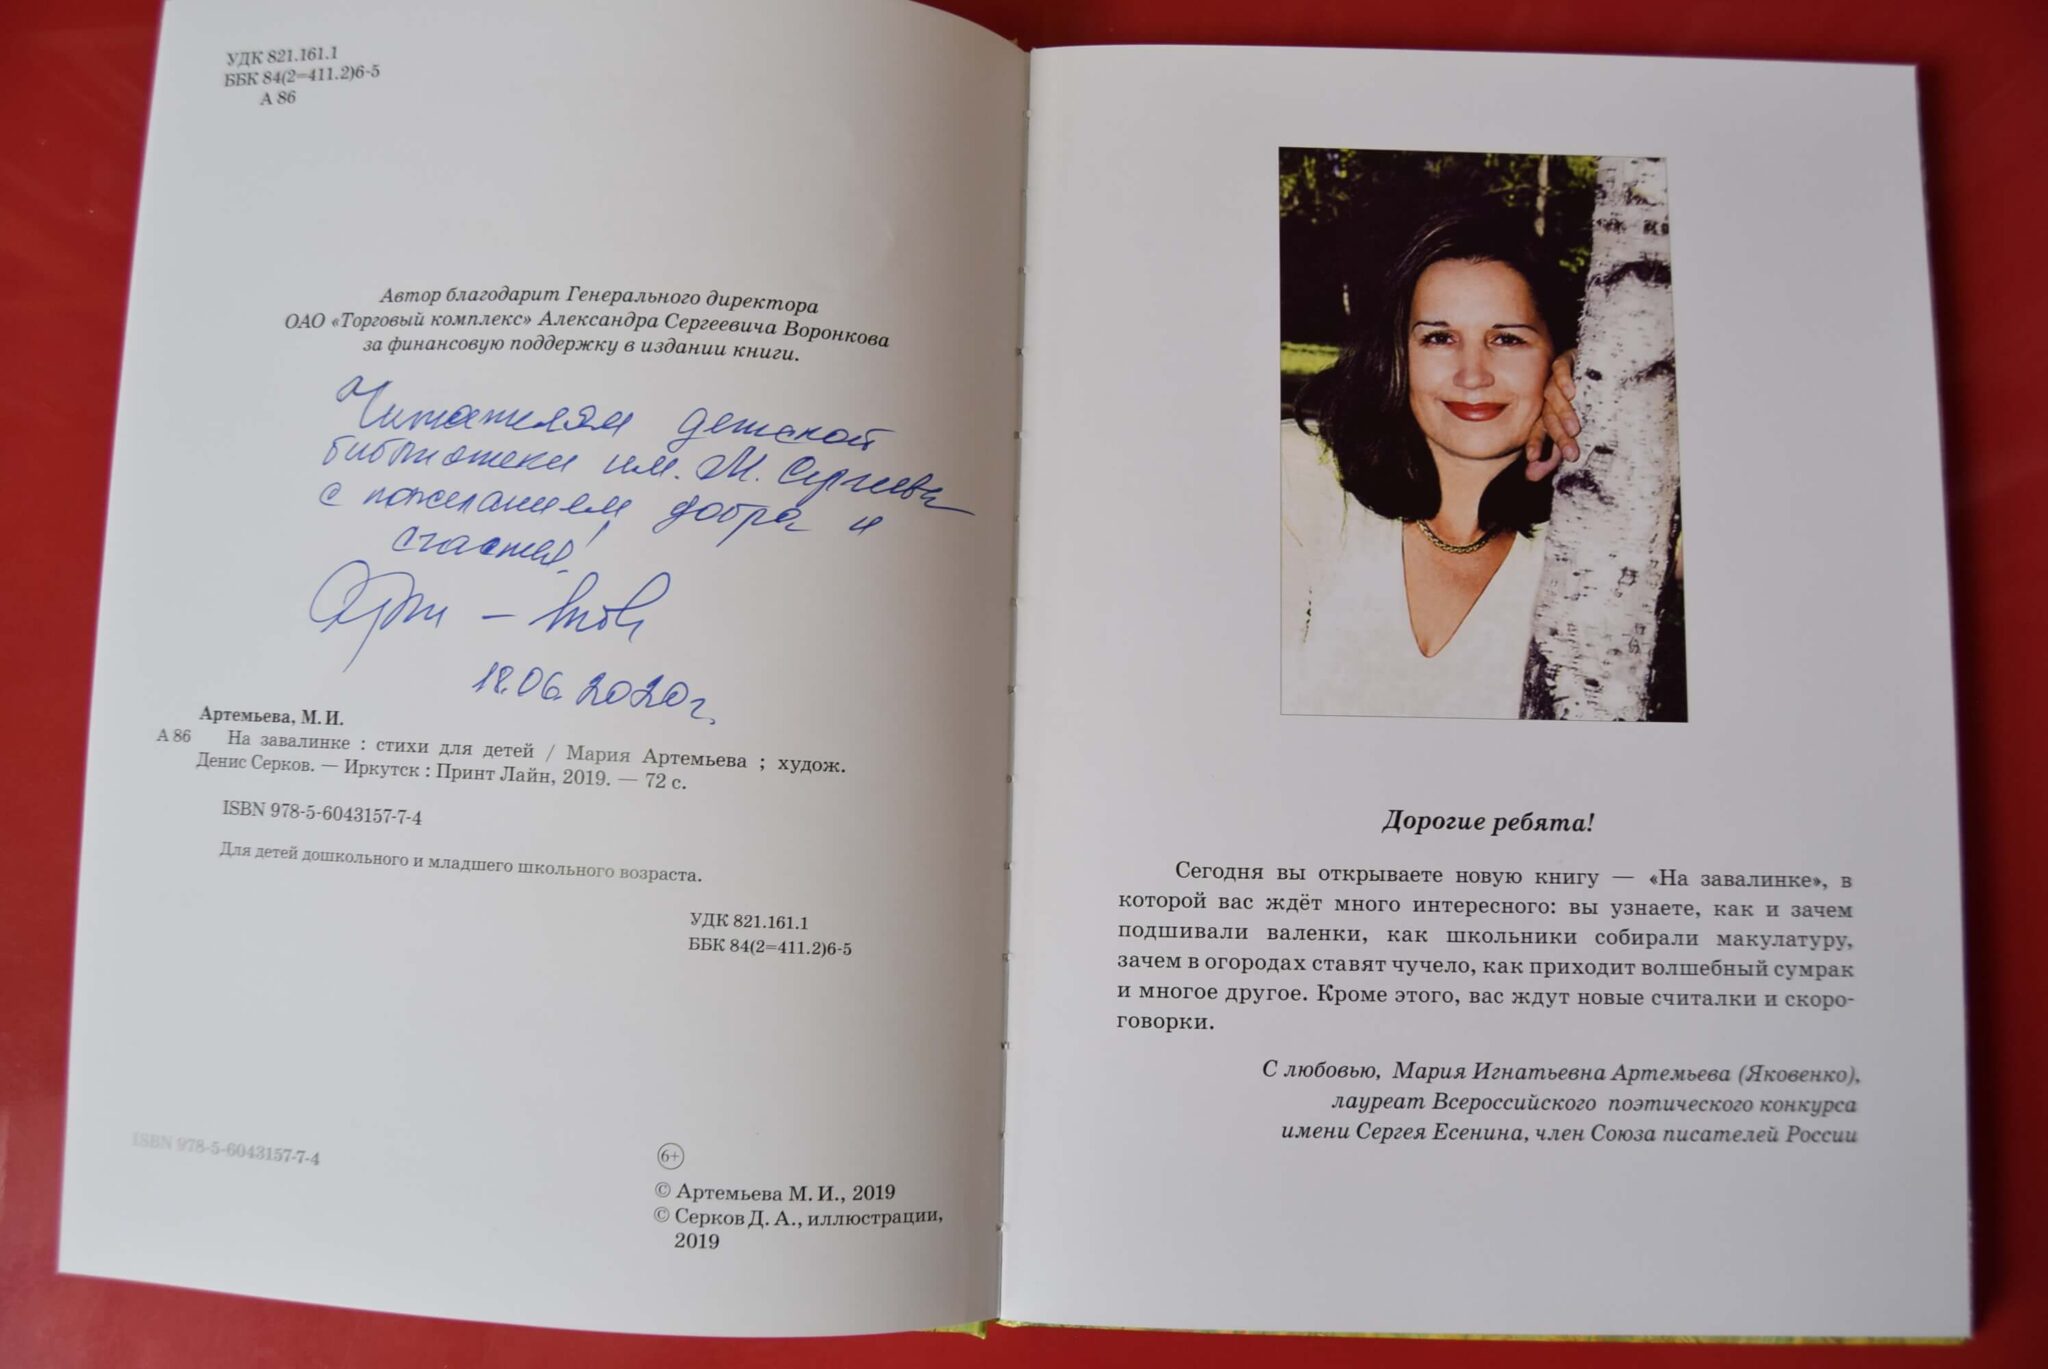 УДК 821.161.1
ББК 84(2=411.2)6-5
А 86
Автор благодарит Генерального директора
ОАО «Торговый комплекс» Александра Сергеевича Воронкова
за финансовую поддержку в издании книги.
Читателям детской
библиотеки им. М. Сергеева
с пожеланием добра и
счастья!
18.06.2020г.
Артемьева, М. И.
А 86 На завалинке : стихи для детей / Мария Артемьева ; худож.
Денис Серков. — Иркутск : Принт Лайн, 2019. — 72 с.
ISBN 978-5-6043157-7-4
Для детей дошкольного и младшего школьного возраста.
УДК 821.161.1
ББК 84(2=411.2)6-5
ISBN 978-5-6043157-7-4
6+
© Артемьева М. И., 2019
© Серков Д. А., иллюстрации,
2019
Дорогие ребята!
Сегодня вы открываете новую книгу — «На завалинке», в
которой вас ждёт много интересного: вы узнаете, как и зачем
подшивали валенки, как школьники собирали макулатуру,
зачем в огородах ставят чучело, как приходит волшебный сумрак
и многое другое. Кроме этого, вас ждут новые считалки и скоро-
говорки.
С любовью, Мария Игнатьевна Артемьева (Яковенко),
лауреат Всероссийского поэтического конкурса
имени Сергея Есенина, член Союза писателей России